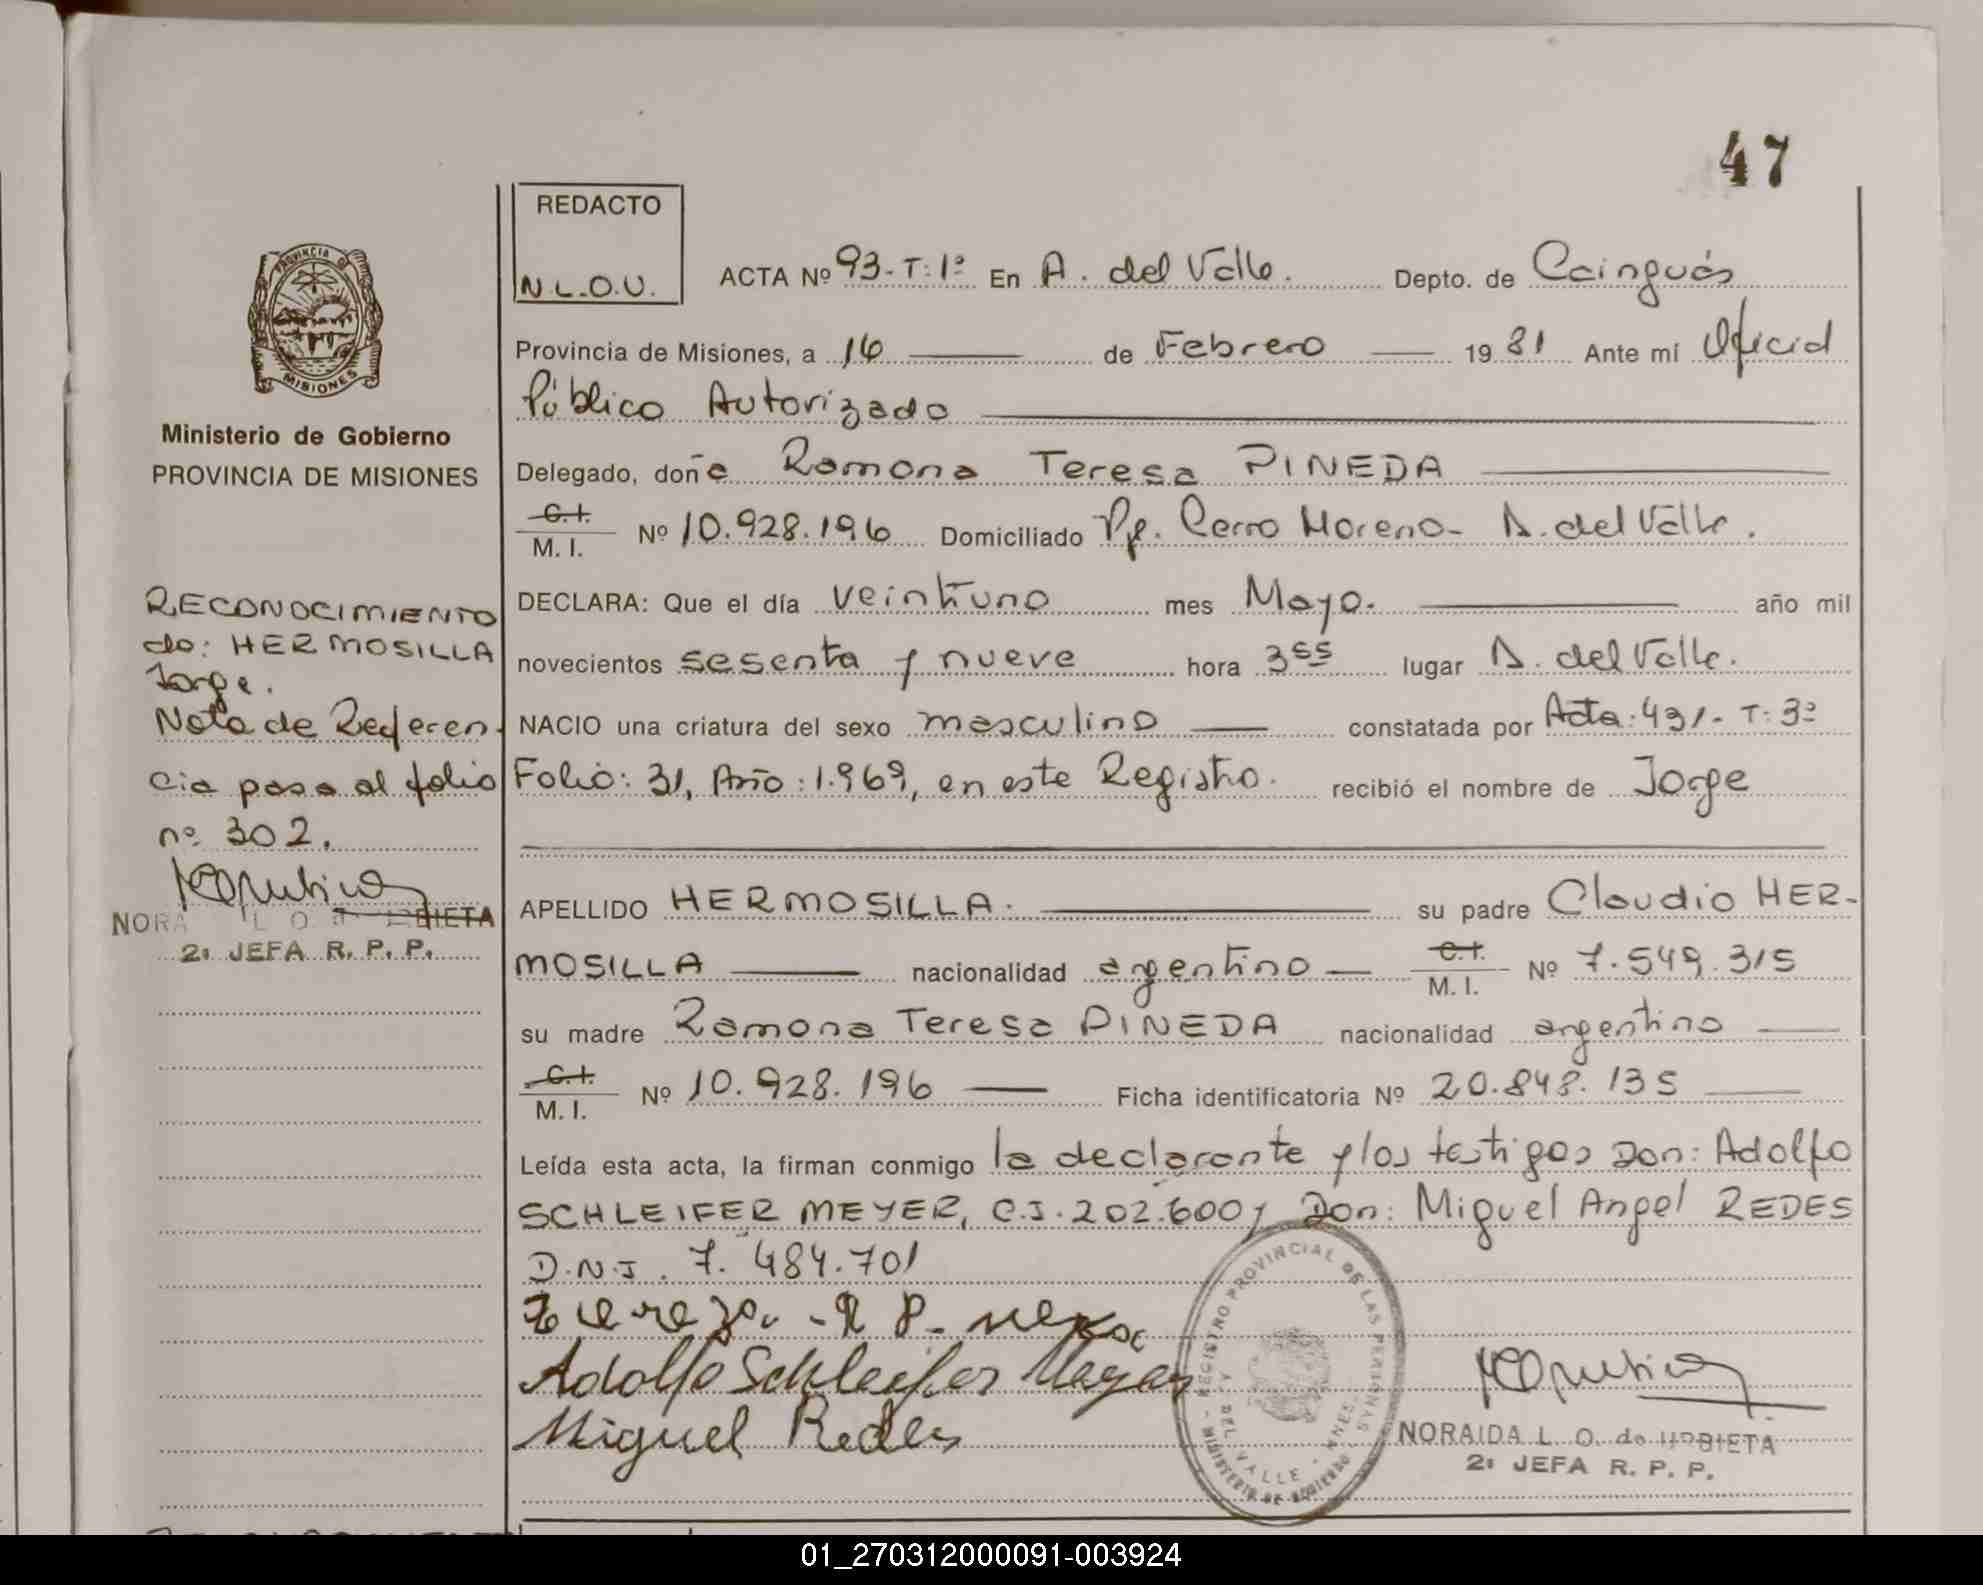 47
REDACTO
N.L.O.U.
PROVINCIA D
MISIONES
Ministerio de Gobierno
PROVINCIA DE MISIONES
RECONOCIMIENTO
de: HERMOSILLA
Jorge.
Nota de Referen-
cia pasa al folio
nº 302.
NORA L O BIETA
2ª JEFA R. P. P.
ACTA Nº 93-T:1º En A. del Valle. Depto. de Cainguás
Provincia de Misiones, a 16 de Febrero 1981 Ante mí Oficial
Público Autorizado
Delegado, doña Ramona Teresa PINEDA
C.I. M. I. Nº 10.928.196 Domiciliado Pje. Cerro Moreno- A. del Valle.
DECLARA: Que el día veintiuno mes Mayo. año mil
novecientos sesenta y nueve hora 3 55 lugar A. del Valle.
NACIO una criatura del sexo masculino constatada por Acta: 431- T: 3º
Folio: 31, Año: 1.969, en este Registro. recibió el nombre de Jorge
APELLIDO HERMOSILLA. su padre Claudio HER-
MOSILLA nacionalidad argentino C.I. M. I. Nº 7.549.315
su madre Ramona Teresa PINEDA nacionalidad argentina
C.I. M. I. Nº 10.928.196 Ficha identificatoria Nº 20.848.135
Leída esta acta, la firman conmigo la declarante y los testigos Don: Adolfo
SCHLEIFER MEYER, C.I. 202.600 y Don: Miguel Angel REDES
D.N.I. 7.484.701
Adolfo Schleifer Mayer
Miguel Redes
REGISTRO PROVINCIAL DE LAS PERSONAS
MINISTERIO DE GOBIERNO
DEL VALLE - MNES.
NORAIDA L. O. de URBIETA
2ª JEFA R. P. P.
01_270312000091-003924